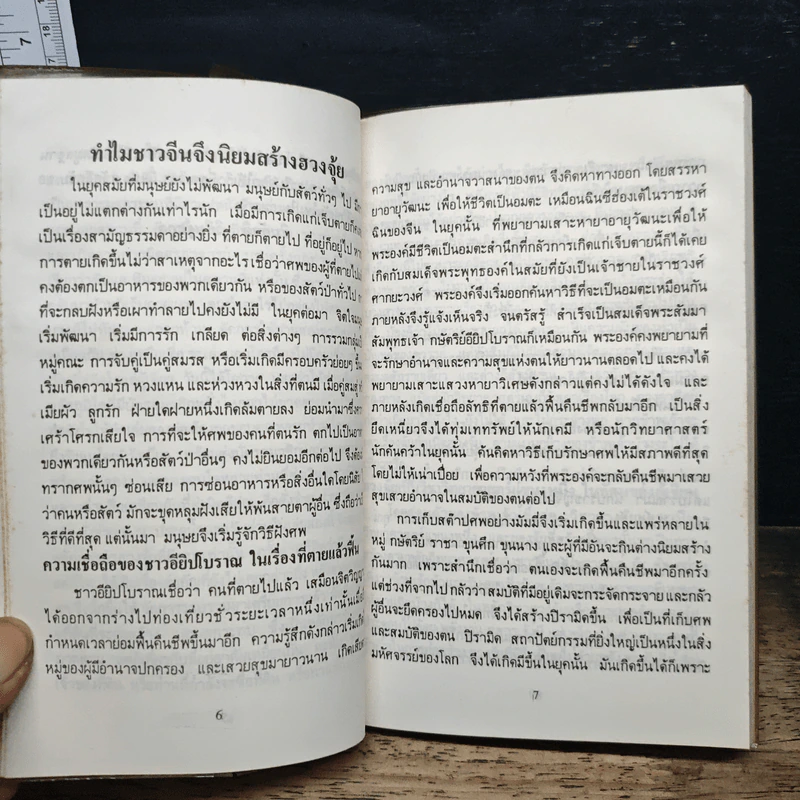 ทำไมชาวจีนจึงนิยมสร้างฮวงจุ้ย
ในยุคสมัยที่มนุษย์ยังไม่พัฒนา มนุษย์กับสัตว์ทั่วๆ ไป
เป็นอยู่ไม่แตกต่างกันเท่าไรนัก เมื่อมีการเกิดแก่เจ็บตาย
เป็นเรื่องสามัญธรรมดาอย่างยิ่ง ที่ตายก็ตายไป ที่อยู่ก็อยู่ไป
การตายเกิดขึ้นไม่ว่าสาเหตุจากอะไร เชื่อว่าศพของผู้ที่ตายไป
คงต้องตกเป็นอาหารของพวกเดียวกัน หรือของสัตว์ป่าทั่วไป
ที่จะกลบฝังหรือเผาทำลายไปคงยังไม่มี ในยุคต่อมา จิตใจ
เริ่มพัฒนา เริ่มมีการรัก เกลียด ต่อสิ่งต่างๆ การรวมกลุ่ม
หมู่คณะ การจับคู่เป็นคู่สมรส หรือเริ่มเกิดมีครอบครัวย่อยๆ
เริ่มเกิดความรัก หวงแหน และห่วงหวงในสิ่งที่ตนมี เมื่อคู่สมสู่
เมียผัว ลูกรัก ฝ่ายใดฝ่ายหนึ่งเกิดล้มตายลง ย่อมนำมาซึ่ง
เศร้าโศรกเสียใจ การที่จะให้ศพของคนที่ตนรัก ตกไปเป็น
ของพวกเดียวกันหรือสัตว์ป่าอื่นๆ คงไม่ยินยอมอีกต่อไป จึงต้อง
ทรากศพนั้นๆ ซ่อนเสีย การซ่อนอาหารหรือสิ่งอื่นใดโดย
ว่าคนหรือสัตว์ มักจะขุดหลุมฝังเสียให้พ้นสายตาผู้อื่น ซึ่งถือว่า
วิธีที่ดีที่สุด แต่นั้นมา มนุษย์จึงเริ่มรู้จักวิธีฝังศพ
ความเชื่อถือของชาวอียิปโบราณ ในเรื่องที่ตายแล้วฟื้น
ชาวอียิปโบราณเชื่อว่า คนที่ตายไปแล้ว เสมือนจิตวิญญา
ได้ออกจากร่างไปท่องเที่ยวชั่วระยะเวลาหนึ่งเท่านั้น
กำหนดเวลาย่อมฟื้นคืนชีพขึ้นมาอีก ความรู้สึกดังกล่าวเริ่ม
หมู่ของผู้มีอำนาจปกครอง และเสวยสุขมายาวนาน เกิด
6
ความสุข และอำนาจวาสนาของตน จึงคิดหาทางออก โดยสรรหา
ยาอายุวัฒนะ เพื่อให้ชีวิตเป็นอมตะ เหมือนฉินซีฮ่องเต้ในราชวงศ์
ฉินของจีน ในยุคนั้น ที่พยายามเสาะหายาอายุวัฒนะเพื่อให้
พระองค์มีชีวิตเป็นอมตะสำนึกที่กลัวการเกิดแก่เจ็บตายนี้ก็ได้เคย
เกิดกับสมเด็จพระพุทธองค์ในสมัยที่ยังเป็นเจ้าชายในราชวงศ์
ศากยะวงศ์ พระองค์จึงเริ่มออกค้นหาวิธีที่จะเป็นอมตะเหมือนกัน
ภายหลังจึงรู้แจ้งเห็นจริง จนตรัสรู้ สำเร็จเป็นสมเด็จพระสัมมา
สัมพุทธเจ้า กษัตริย์อียิปโบราณก็เหมือนกัน พระองค์คงพยายามที่
จะรักษาอำนาจและความสุขแห่งตนให้ยาวนานตลอดไป และคงได้
พยายามเสาะแสวงหายาวิเศษดังกล่าวแต่คงไม่ได้ดังใจ และ
ภายหลังเกิดเชื่อถือลัทธิที่ตายแล้วฟื้นคืนชีพกลับมาอีก เป็นสิ่ง
ยึดเหนี่ยวจึงได้ทุ่มเททรัพย์ให้นักเคมี หรือนักวิทยาศาสตร์
นักค้นคว้าในยุคนั้น ค้นคิดหาวิธีเก็บรักษาศพให้มีสภาพดีที่สุด
โดยไม่ให้เน่าเปื่อย เพื่อความหวังที่พระองค์จะกลับคืนชีพมาเสวย
สุขเสวยอำนาจในสมบัติของตนต่อไป
การเก็บสต๊าปศพอย่างมัมมี่จึงเริ่มเกิดขึ้นและแพร่หลายใน
หมู่ กษัตริย์ ราชา ขุนศึก ขุนนาง และผู้ที่มีอันจะกินต่างนิยมสร้าง
กันมาก เพราะสำนึกเชื่อว่า ตนเองจะเกิดฟื้นคืนชีพมาอีกครั้ง
แต่ช่วงที่จากไป กลัวว่า สมบัติที่มีอยู่เดิมจะกระจัดกระจาย และกลัว
ผู้อื่นจะยึดครองไปหมด จึงได้สร้างปิรามิดขึ้น เพื่อเป็นที่เก็บศพ
และสมบัติของตน ปิรามิด สถาปัตย์กรรมที่ยิ่งใหญ่เป็นหนึ่งในสิ่ง
มหัศจรรย์ของโลก จึงได้เกิดมีขึ้นในยุคนั้น มันเกิดขึ้นได้ก็เพราะ
7